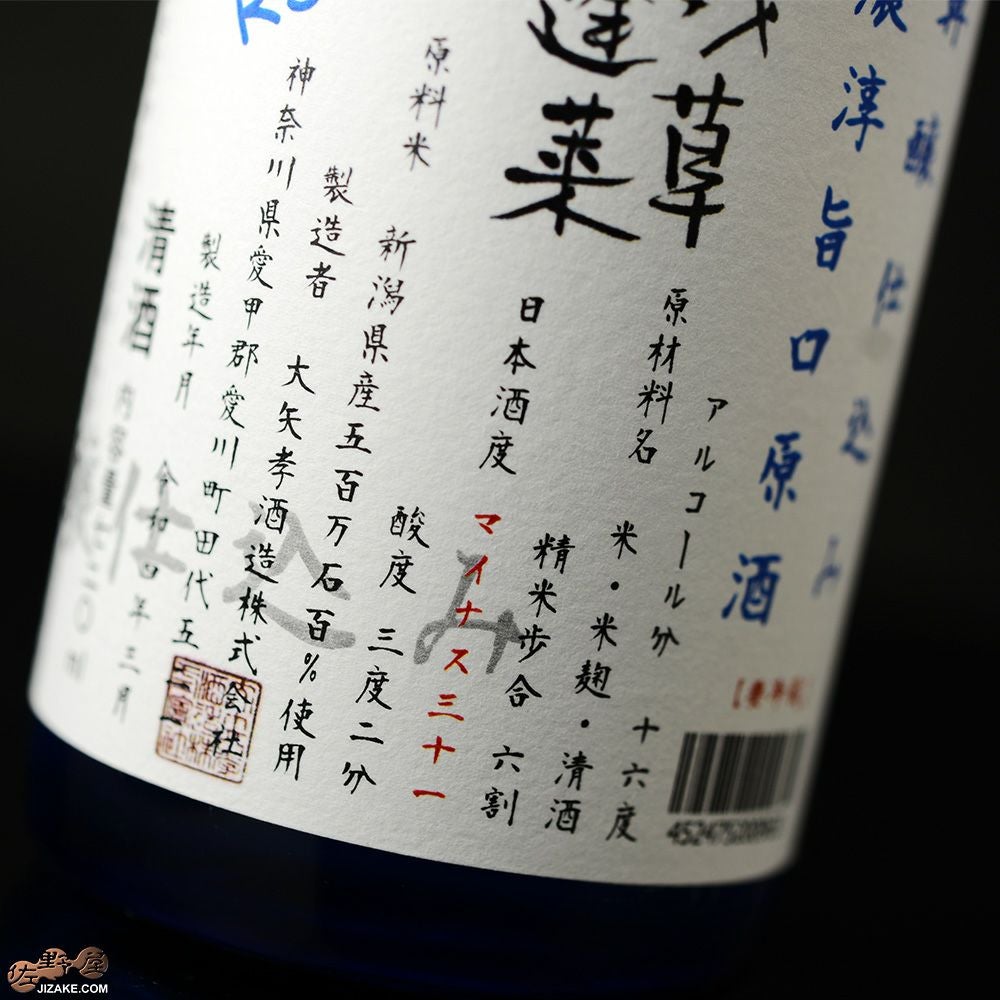 醸仕込み
淳旨口原酒
草
蓬莱
アルコール分 十六度
原材料名 米・米麹・清酒
精米歩合 六割
日本酒度 マイナス三十一
酸度 三度二分
原料米 新潟県産五百万石百%使用
製造者 大矢孝酒造株式会社
神奈川県愛甲郡愛川町田代五
製造年月 令和四年三月
清酒 内容量七二〇ml
込み
佐野屋
JIZAKE.COM